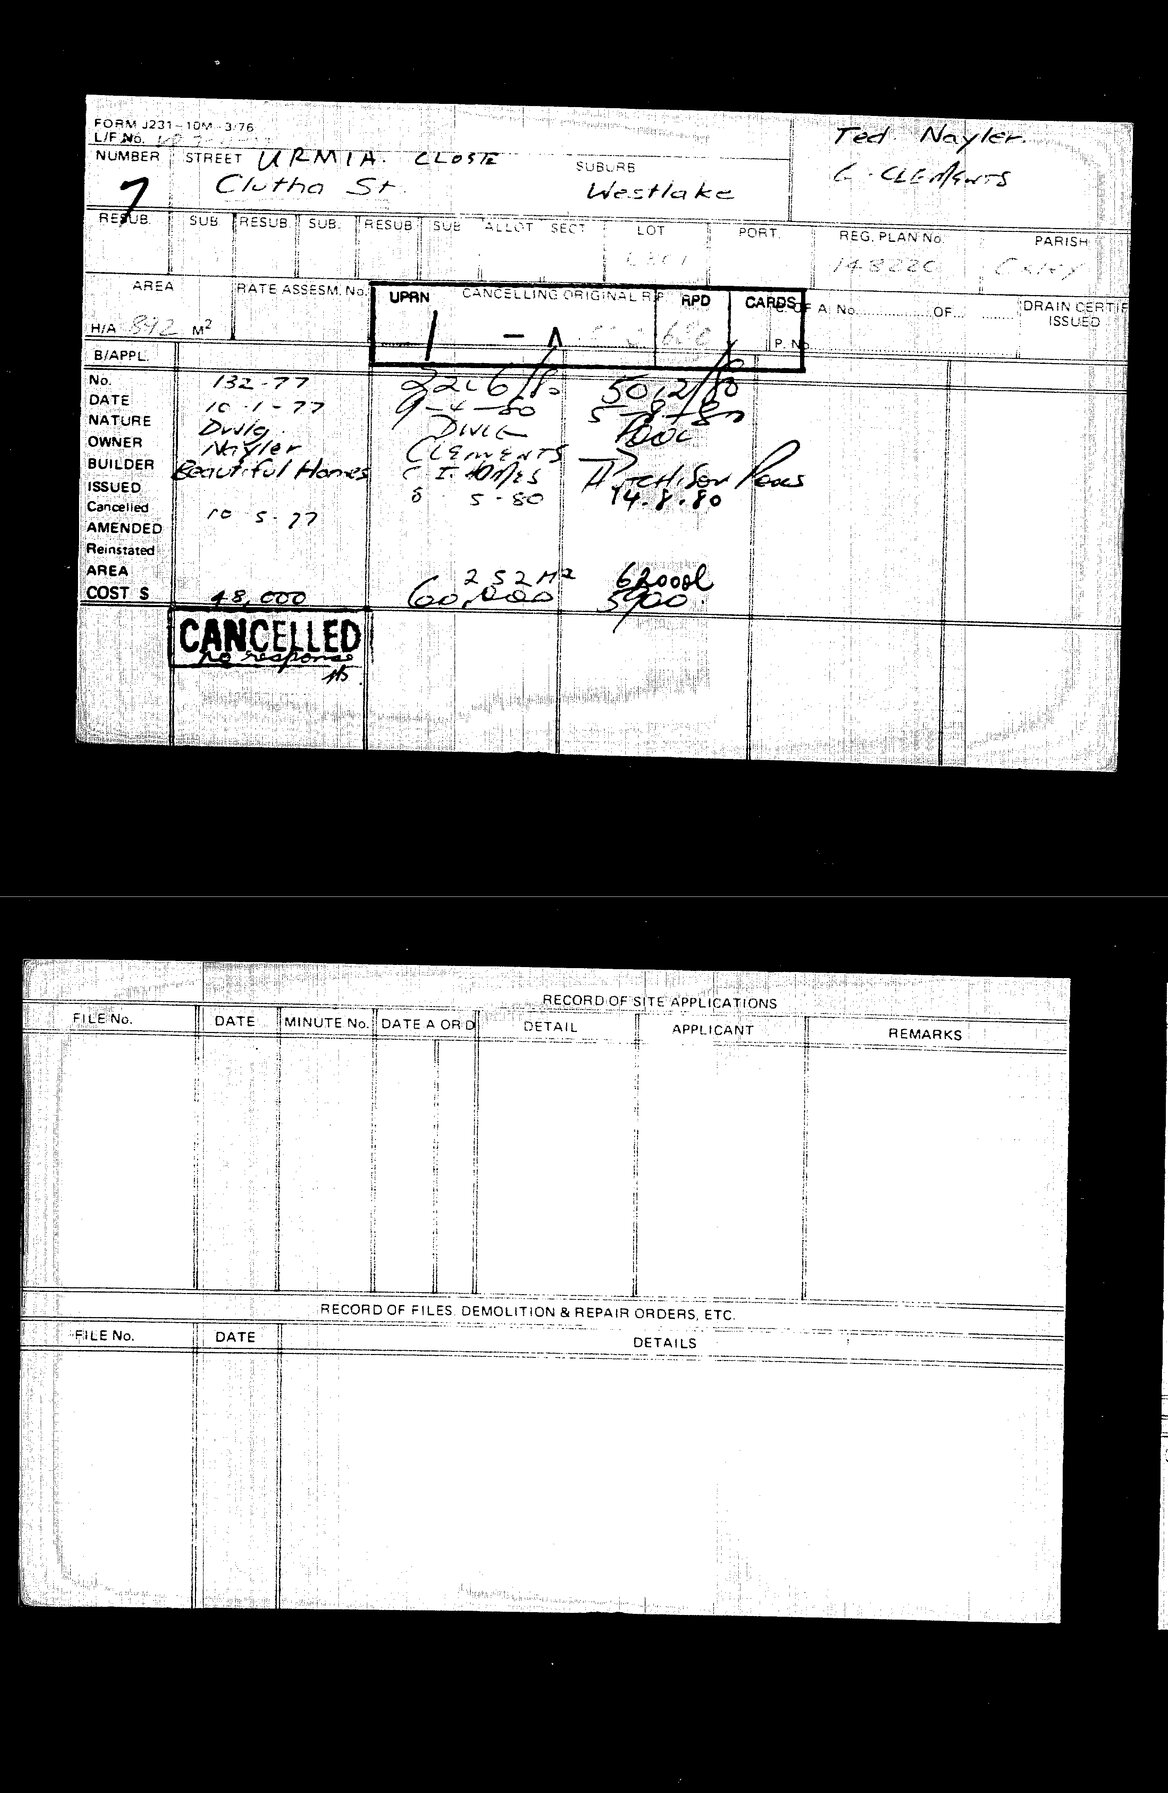 FORM J231-10M-3/76
L/F No.
NUMBER STREET URMIA. CLOSE
SUBURB
Ted Nayler.
7 Clutha St. Westlake
G. CLEMENTS
RESUB. SUB RESUB. SUB. RESUB SUB ALLOT SECT LOT PORT. REG. PLAN No. PARISH
148220
AREA RATE ASSESM. No. UPRN CANCELLING ORIGINAL R.P. RPD CARDS C. OF A. No. OF DRAIN CERTIF
ISSUED
H/A 892 M² 1 - A P. No.
B/APPL.
No. 132-77 2206/80 5012/80
DATE 10-1-77 9-4-80 5-8-80
NATURE Dwlg. DWLG POOL
OWNER Nayler CLEMENTS
BUILDER Beautiful Homes HOMES
ISSUED 5-80 14.8.80
Cancelled 10 5-77
AMENDED
Reinstated
AREA 252 M2 62000l
COST $ 48,000 60,000 5900.
CANCELLED
no response
RECORD OF SITE APPLICATIONS
FILE No. DATE MINUTE No. DATE A OR D DETAIL APPLICANT REMARKS
RECORD OF FILES, DEMOLITION & REPAIR ORDERS, ETC.
FILE No. DATE DETAILS